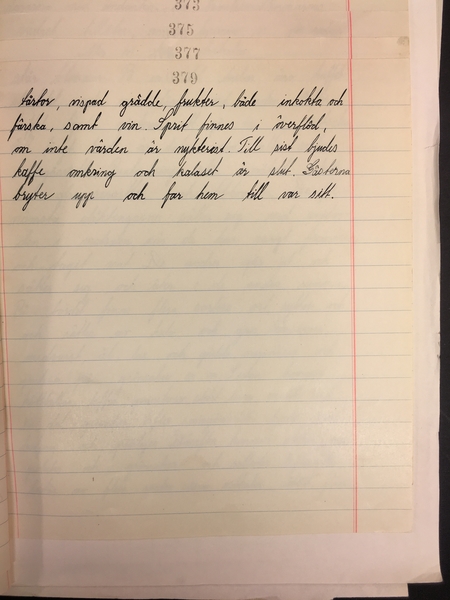 373
375
377
379
tårtor, vispad grädde, frukter, både inkokta och
färska, samt vin. Sprit finnes i överflöd,
om inte värden är nykterist. Till sist bjudes
kaffe omkring och kalaset är slut. Gästerna
bryter upp och far hem till var sitt.